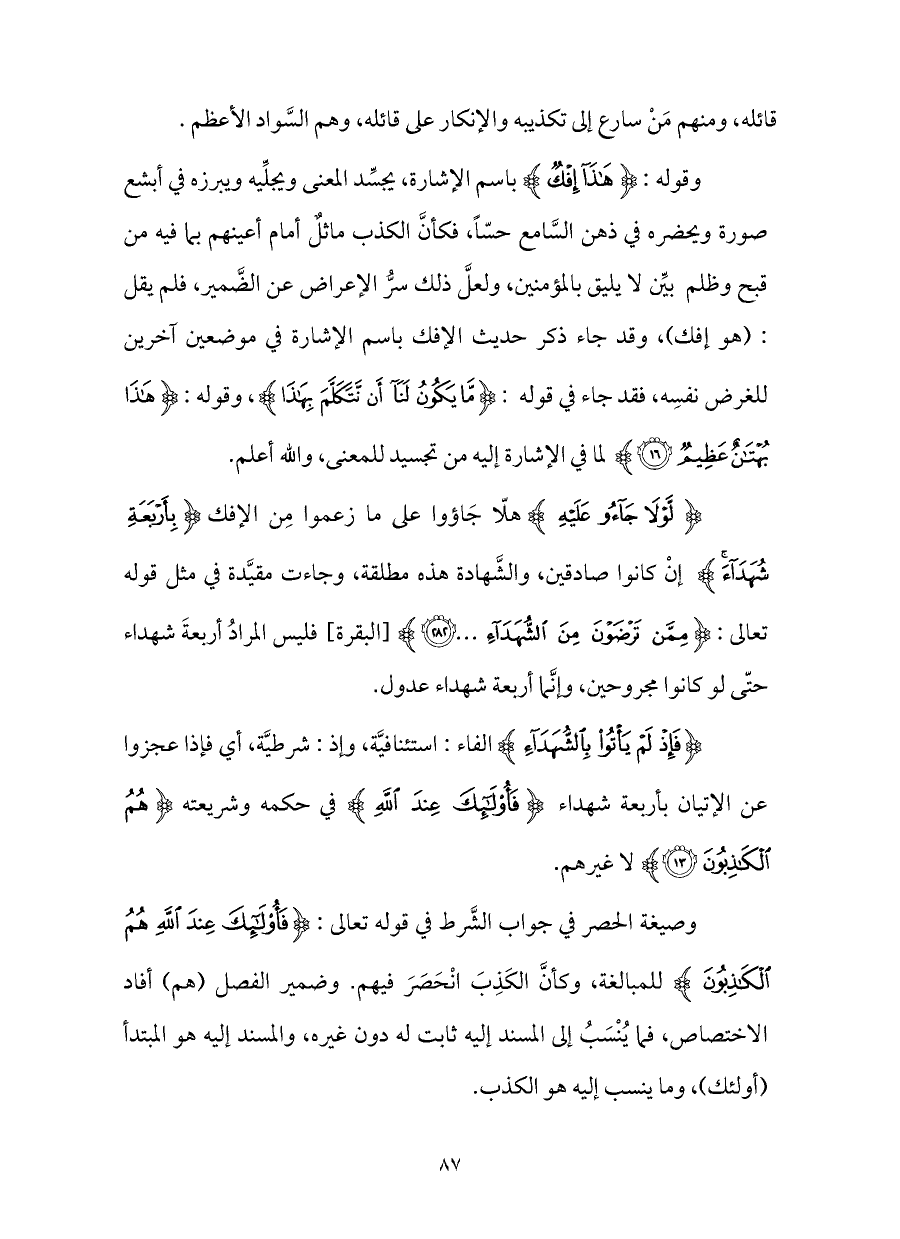 قائله، ومنهم مَنْ سارع إلى تكذيبه والإنكار على قائله، وهم السَّواد الأعظم .
وقوله : ﴿ هَٰذَآ إِفۡكٞ ﴾ باسم الإشارة، يجسِّد المعنى ويجلِّيه ويبرزه في أبشع
صورة ويحضره في ذهن السَّامع حسّاً، فكأنَّ الكذب ماثلٌ أمام أعينهم بما فيه من
قبح وظلم بيِّن لا يليق بالمؤمنين، ولعلَّ ذلك سرُّ الإعراض عن الضَّمير، فلم يقل
: (هو إفك)، وقد جاء ذكر حديث الإفك باسم الإشارة في موضعين آخرين
للغرض نفسِه، فقد جاء في قوله : ﴿ مَّا يَكُونُ لَنَآ أَن نَّتَكَلَّمَ بِهَٰذَا ﴾ ، وقوله : ﴿ هَٰذَا
بُهۡتَٰنٌ عَظِيمٞ ١٦ ﴾ لما في الإشارة إليه من تجسيد للمعنى، والله أعلم.
﴿ لَّوۡلَا جَآءُو عَلَيۡهِ ﴾ هلّا جَاؤوا على ما زعموا مِن الإفك ﴿ بِأَرۡبَعَةِ
شُهَدَآءَۚ ﴾ إنْ كانوا صادقين، والشَّهادة هذه مطلقة، وجاءت مقيَّدة في مثل قوله
تعالى : ﴿ مِمَّن تَرۡضَوۡنَ مِنَ ٱلشُّهَدَآءِ ... ٢٨٢ ﴾ [البقرة] فليس المرادُ أربعةَ شهداء
حتّى لو كانوا مجروحين، وإنَّما أربعة شهداء عدول.
﴿ فَإِذۡ لَمۡ يَأۡتُواْ بِٱلشُّهَدَآءِ ﴾ الفاء : استئنافيَّة، وإذ : شرطيَّة، أي فإذا عجزوا
عن الإتيان بأربعة شهداء ﴿ فَأُوْلَٰٓئِكَ عِندَ ٱللَّهِ ﴾ في حكمه وشريعته ﴿ هُمُ
ٱلۡكَٰذِبُونَ ١٣ ﴾ لا غيرهم.
وصيغة الحصر في جواب الشَّرط في قوله تعالى : ﴿ فَأُوْلَٰٓئِكَ عِندَ ٱللَّهِ هُمُ
ٱلۡكَٰذِبُونَ ﴾ للمبالغة، وكأنَّ الكَذِبَ انْحَصَرَ فيهم. وضمير الفصل (هم) أفاد
الاختصاص، فما يُنْسَبُ إلى المسند إليه ثابت له دون غيره، والمسند إليه هو المبتدأ
(أولئك)، وما ينسب إليه هو الكذب.
٨٧